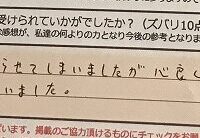 受けられていかがでしたか？（ズバリ10点
感想が、私達の何よりの力となり今後の参考となりま
らせてしまいましたが心良く
いました。
ています。掲載のご協力頂けるものにチェックをお願